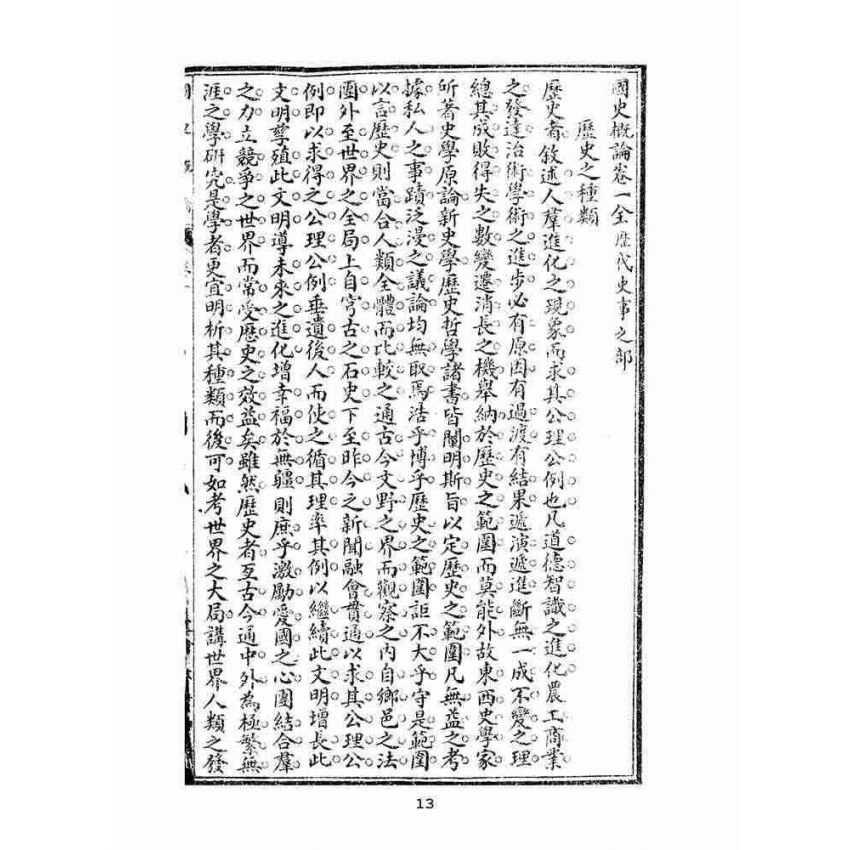 國史概論卷一全 歷代史事之部
歷史之種類
歷史者敘述人羣進化之現象而求其公理公例也凡道德智識之進化農工商業
之發達治術學術之進步必有原因有過渡有結果遞演遞進斷無一成不變之理
總其成敗得失之數變遷消長之機舉納於歷史之範圍而莫能外故東西史學家
所著史學原論新史學歷史哲學諸書皆闡明斯旨以定歷史之範圍凡無益之考
據私人之事蹟泛漫之議論均無取焉浩乎博乎歷史之範圍詎不大乎守是範圍
以言歷史則當合人類全體而比較之通古今文野之界而觀察之內自鄉邑之法
團外至世界之全局上自穹古之石史下至昨今之新聞融會貫通以求其公理公
例即以求得之公理公例垂遺後人而使之循其理率其例以繼續此文明增長此
文明孳殖此文明導未來之進化增幸福於無疆則庶乎激勵愛國之心團結合羣
之力立競爭之世界而常受歷史之效益矣雖然歷史者亙古今通中外為極繁無
涯之學研究是學者更宜明析其種類而後可如考世界之大局講世界人類之發
13